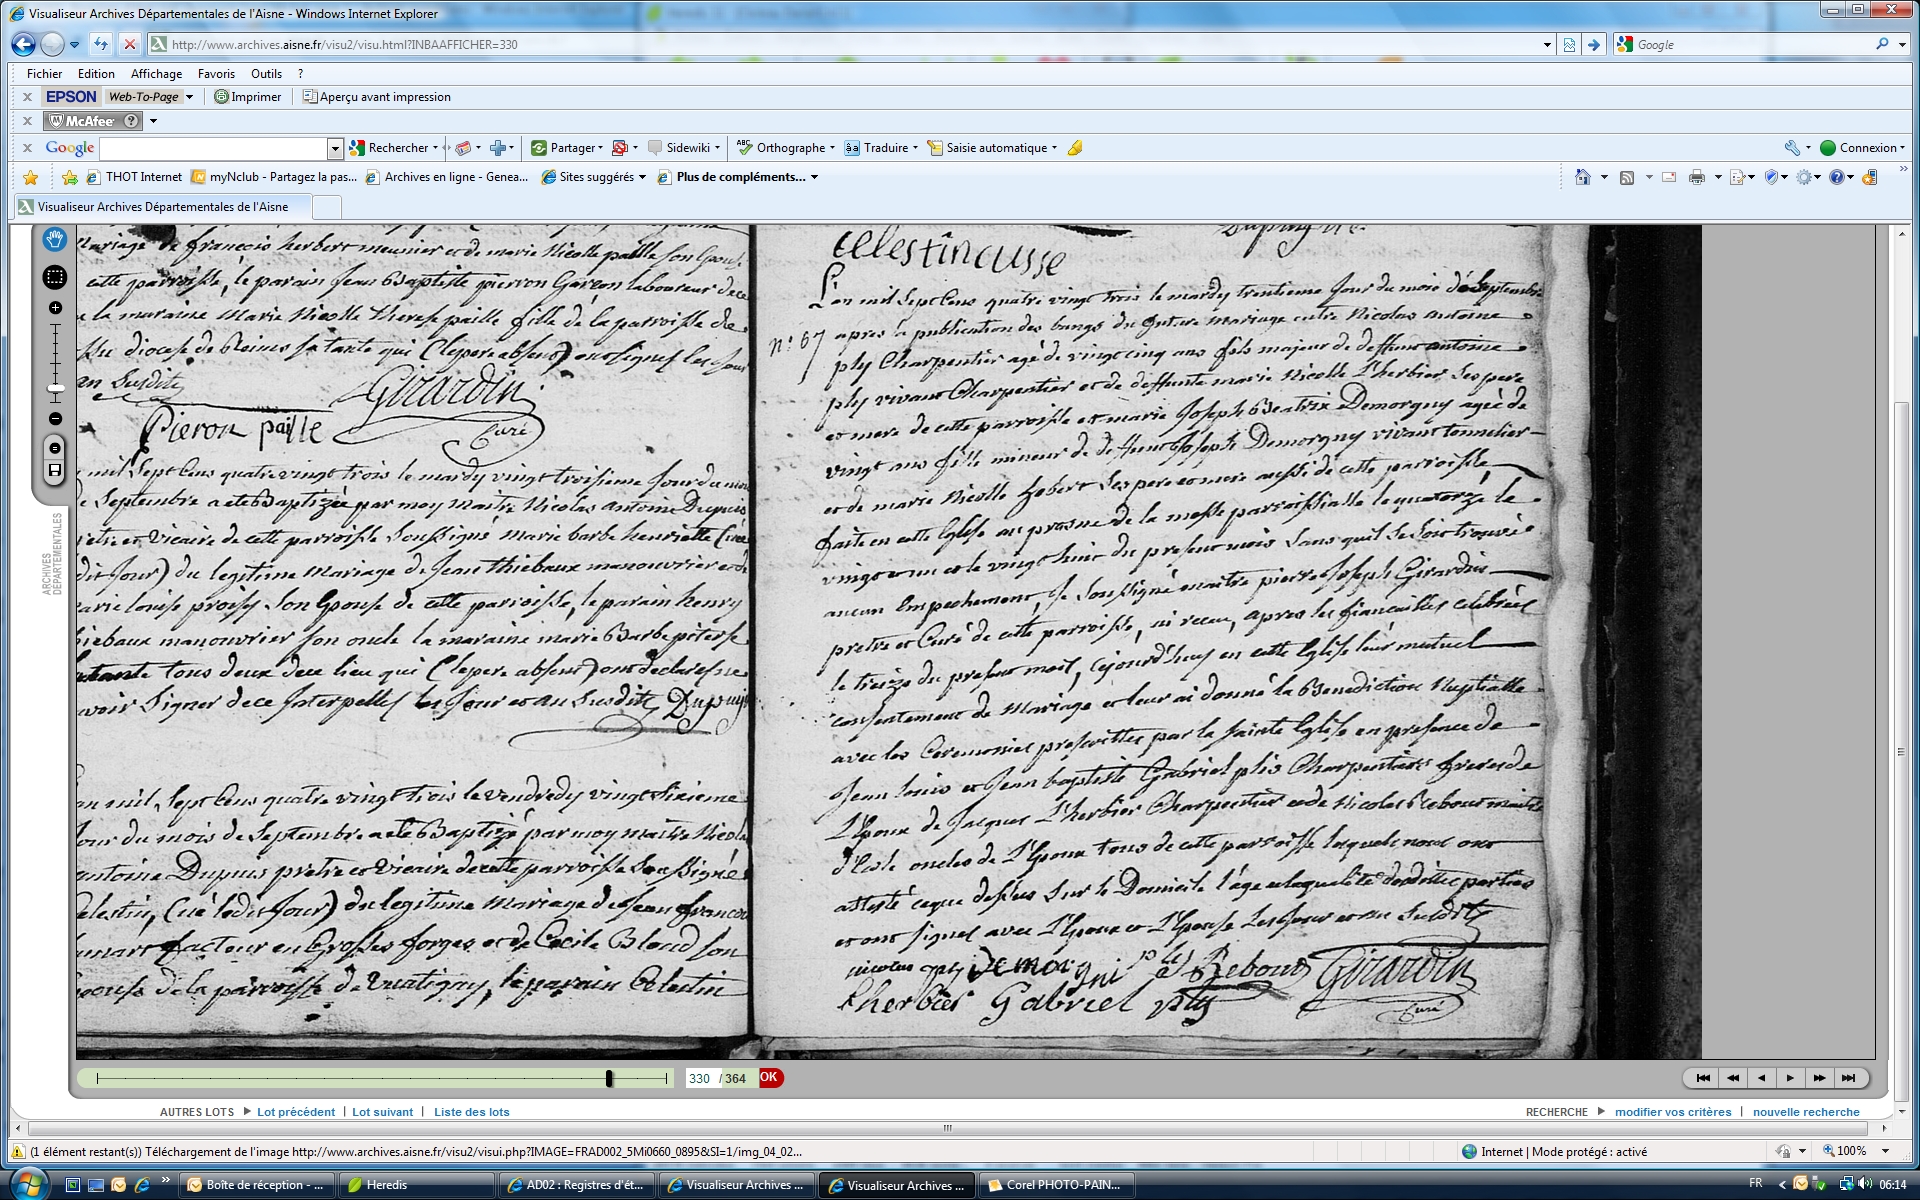 Visualiseur Archives Départementales de l'Aisne - Windows Internet Explorer
http://www.archives.aisne.fr/visu2/visu.html?INBAAFFICHER=330
Google
Fichier Edition Affichage Favoris Outils ?
EPSON Web-To-Page Imprimer Aperçu avant impression
McAfee
Google Rechercher Partager Sidewiki Orthographe Traduire Saisie automatique Connexion
THOT Internet myNclub - Partagez la pas... Archives en ligne - Genea... Sites suggérés Plus de compléments...
Visualiseur Archives Départementales de l'Aisne
ARCHIVES
DEPARTEMENTALES
mariage de francois herbert meunier et de marie Nicolle paille son Epouse
cette parroisse, le parain jean Baptiste pierron Garcon laboureur de ce
la maraine Marie Nicolle Therese paille fille de la parroisse de
du diocese de Reims sa tante qui (le pere absent) ont signes les jour
an susdits
GIRARDIN
Curé
Pieron paille
mil sept Cens quatre vingt trois le mardy vingt troisieme jour du mois
de Septembre a eté Baptizée par moy maitre Nicolas antoine Dupuis
pretre et vicaire de cette parroisse soussigné marie barbe henriette (née
dit jour) du legitime mariage de jean thiebaux manouvrier et de
marie louise proisy son Epouse de cette parroisse, le parain henry
thiebaux manouvrier son oncle la maraine marie Barbe
tante tous deux de ce lieu qui (le pere absent) ont declares ne
savoir signer de ce Interpellés les jour et an susdits Dupuis
L'an mil sept Cens quatre vingt trois le vendredy vingt sixieme
jour du mois de Septembre a eté Baptizé par moy maitre Nicolas
antoine Dupuis pretre et vicaire de cette parroisse soussigné
Celestin, (né le dit jour) du legitime mariage de jean francois
facteur en Grosses forges et de Cecile Blond son
epouse de la parroisse de Watigny, le parain Celestin
celestin cusse
L'an mil sept Cens quatre vingt trois le mardy trentieme jour du mois de Septembre
n.° 67 apres la publication des bangs du future mariage entre Nicolas antoine
plij Charpentier agé de vingt cinq ans fils majeur de deffunt antoine
plij vivant Charpentier et de deffunte marie Nicolle L'herbier ses pere
et mere de cette parroisse et marie Joseph Beatrix Demorgny agée de
vingt ans fille mineur de deffunt Joseph Demorgny vivant tonnelier
et de marie Nicolle hobert ses pere et mere aussi de cette parroisse
faite en cette Eglise au prosne de la messe parroissialle le quatorze le
vingt et un et le vingt huit du present mois sans qu'il se soit trouvé
aucun Empechement, Je soussigné maitre pierre Joseph Girardin
pretre et Curé de cette parroisse, ai recu, apres les fiancailles celebrées
le treize du present mois, cejourd'huy en cette Eglise leur mutuel
consentement de mariage et leur ai donné la Benediction Nuptialle
avec les Ceremonies prescrittes par la sainte Eglise en presence de
jean louis et jean baptiste Gabriel plij Charpentiers freres de
L'Epoux de Jacques L'herbier Charpentier et de Nicolas Rebout maitre
d'Ecole oncles de L'Epoux tous de cette parroisse lesquels nous ont
attesté ce que dessus sur le Domicile l'age et la qualité desdittes parties
et ont signes avec L'Epoux et L'Epouse les jour et an susdits
nicolas plij Demorgni Rebout GIRARDIN
Lherbier Gabriel plij Curé
330 / 364 OK
AUTRES LOTS Lot précédent | Lot suivant | Liste des lots RECHERCHE modifier vos critères | nouvelle recherche
(1 élément restant(s)) Téléchargement de l'image http://www.archives.aisne.fr/visu2/visui.php?IMAGE=FRAD002_5Mi0660_0895&SI=1/img_04_02... Internet | Mode protégé : activé 100%
Boîte de réception - ... Heredis AD02 : Registres d'ét... Visualiseur Archives ... Visualiseur Archives ... Corel PHOTO-PAIN... FR 06:14